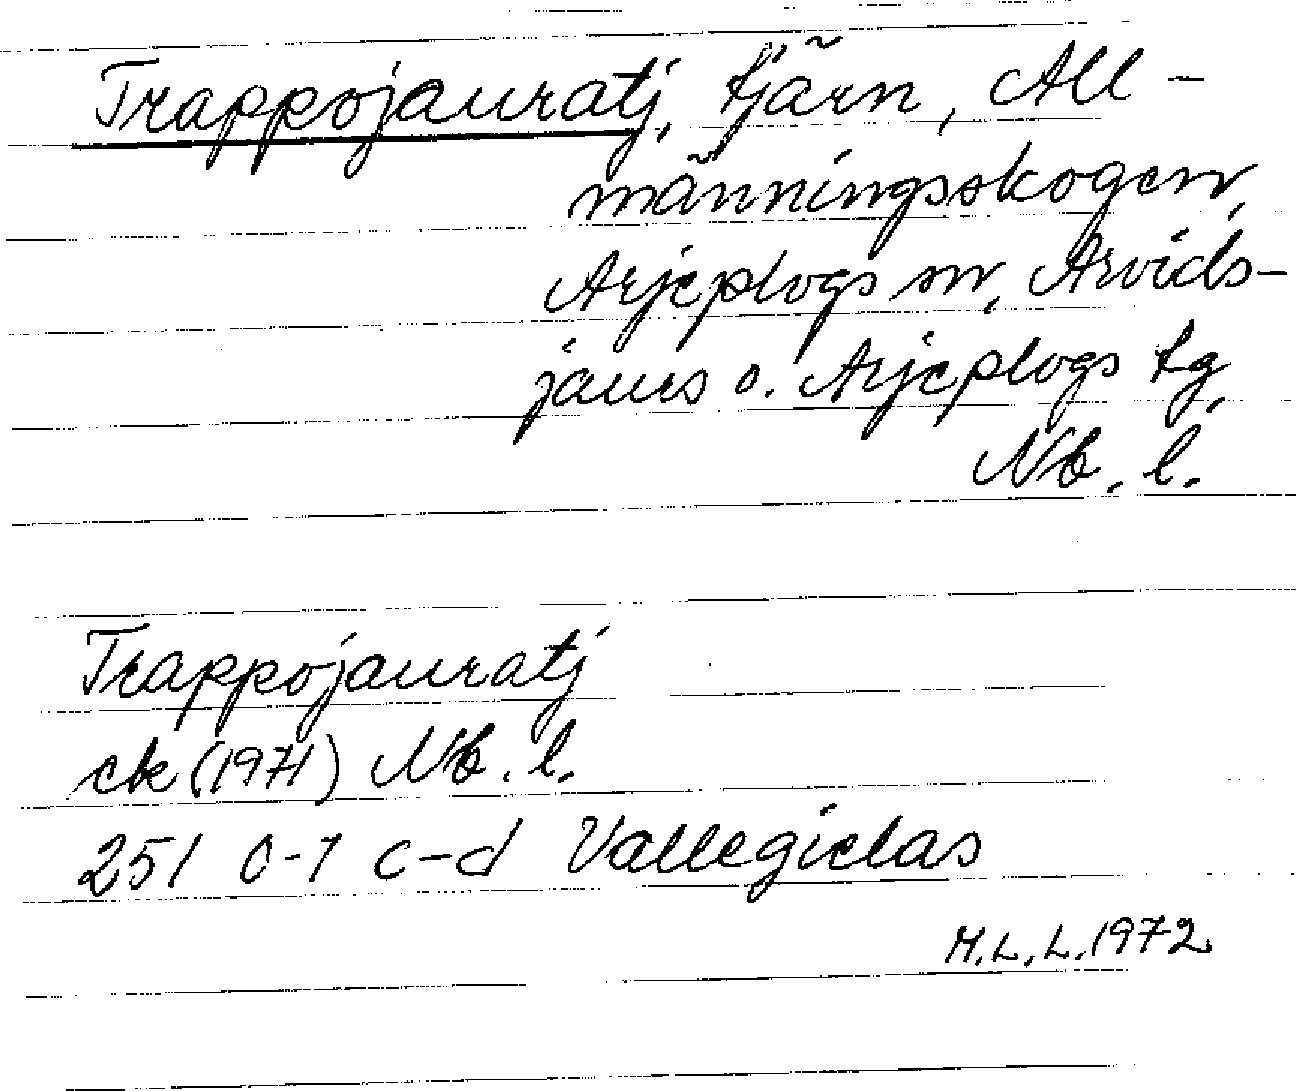 Trappojauratj, tjärn, All-
männingsskogen,
Arjeplogs sn, Arvids-
jaurs o. Arjeplogs tg,
Nb. l.
Trappojauratj
ek (1971) Nb. l.
251 0-1 c-d Vallegielas
M.L.L. 1972